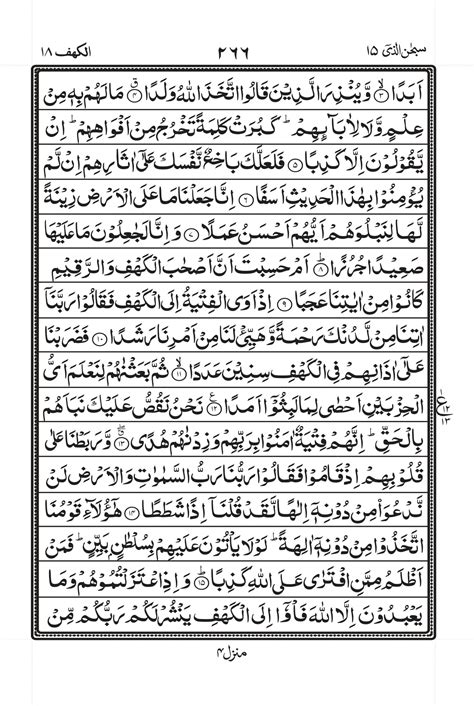 سبحٰن الذی ۱۵ ۲۶۶ الکهف ۱۸
اَبَدًا ۙ‏﴿۳﴾ وَّیُنْذِرَ الَّذِیْنَ قَالُوا اتَّخَذَ اللّٰهُ وَلَدًا ۗ‏﴿۴﴾ مَا لَهُمْ بِهٖ مِنْ
عِلْمٍ وَّلَا لِاٰبَآىِٕهِمْ ؕ كَبُرَتْ كَلِمَةً تَخْرُجُ مِنْ اَفْوَاهِهِمْ ؕ اِنْ
یَّقُوْلُوْنَ اِلَّا كَذِبًا ﴿۵﴾ فَلَعَلَّكَ بَاخِعٌ نَّفْسَكَ عَلٰۤی اٰثَارِهِمْ اِنْ لَّمْ
یُؤْمِنُوْا بِهٰذَا الْحَدِیْثِ اَسَفًا ﴿۶﴾ اِنَّا جَعَلْنَا مَا عَلَی الْاَرْضِ زِیْنَةً
لَّهَا لِنَبْلُوَهُمْ اَیُّهُمْ اَحْسَنُ عَمَلًا ﴿۷﴾ وَاِنَّا لَجٰعِلُوْنَ مَا عَلَیْهَا
صَعِیْدًا جُرُزًا ؕ‏﴿۸﴾ اَمْ حَسِبْتَ اَنَّ اَصْحٰبَ الْكَهْفِ وَالرَّقِیْمِ
كَانُوْا مِنْ اٰیٰتِنَا عَجَبًا ﴿۹﴾ اِذْ اَوَی الْفِتْیَةُ اِلَی الْكَهْفِ فَقَالُوْا رَبَّنَاۤ
اٰتِنَا مِنْ لَّدُنْكَ رَحْمَةً وَّهَیِّئْ لَنَا مِنْ اَمْرِنَا رَشَدًا ﴿۱۰﴾ فَضَرَبْنَا
عَلٰۤی اٰذَانِهِمْ فِی الْكَهْفِ سِنِیْنَ عَدَدًا ۙ‏﴿۱۱﴾ ثُمَّ بَعَثْنٰهُمْ لِنَعْلَمَ اَیُّ
الْحِزْبَیْنِ اَحْصٰی لِمَا لَبِثُوْۤا اَمَدًا ﴿۱۲﴾ نَحْنُ نَقُصُّ عَلَیْكَ نَبَاَهُمْ
بِالْحَقِّ ؕ اِنَّهُمْ فِتْیَةٌ اٰمَنُوْا بِرَبِّهِمْ وَزِدْنٰهُمْ هُدًی ۖ‏﴿۱۳﴾ وَّرَبَطْنَا عَلٰی
قُلُوْبِهِمْ اِذْ قَامُوْا فَقَالُوْا رَبُّنَا رَبُّ السَّمٰوٰتِ وَالْاَرْضِ لَنْ
نَّدْعُوَا۠ مِنْ دُوْنِهٖۤ اِلٰهًا لَّقَدْ قُلْنَاۤ اِذًا شَطَطًا ﴿۱۴﴾ هٰۤؤُلَآءِ قَوْمُنَا
اتَّخَذُوْا مِنْ دُوْنِهٖۤ اٰلِهَةً ؕ لَوْلَا یَاْتُوْنَ عَلَیْهِمْ بِسُلْطٰنٍۭ بَیِّنٍ ؕ فَمَنْ
اَظْلَمُ مِمَّنِ افْتَرٰی عَلَی اللّٰهِ كَذِبًا ؕ‏﴿۱۵﴾ وَاِذِ اعْتَزَلْتُمُوْهُمْ وَمَا
یَعْبُدُوْنَ اِلَّا اللّٰهَ فَاْوٗۤا اِلَی الْكَهْفِ یَنْشُرْ لَكُمْ رَبُّكُمْ مِّنْ
ع ۱ ۱۲ ۱۳
منزل ۴